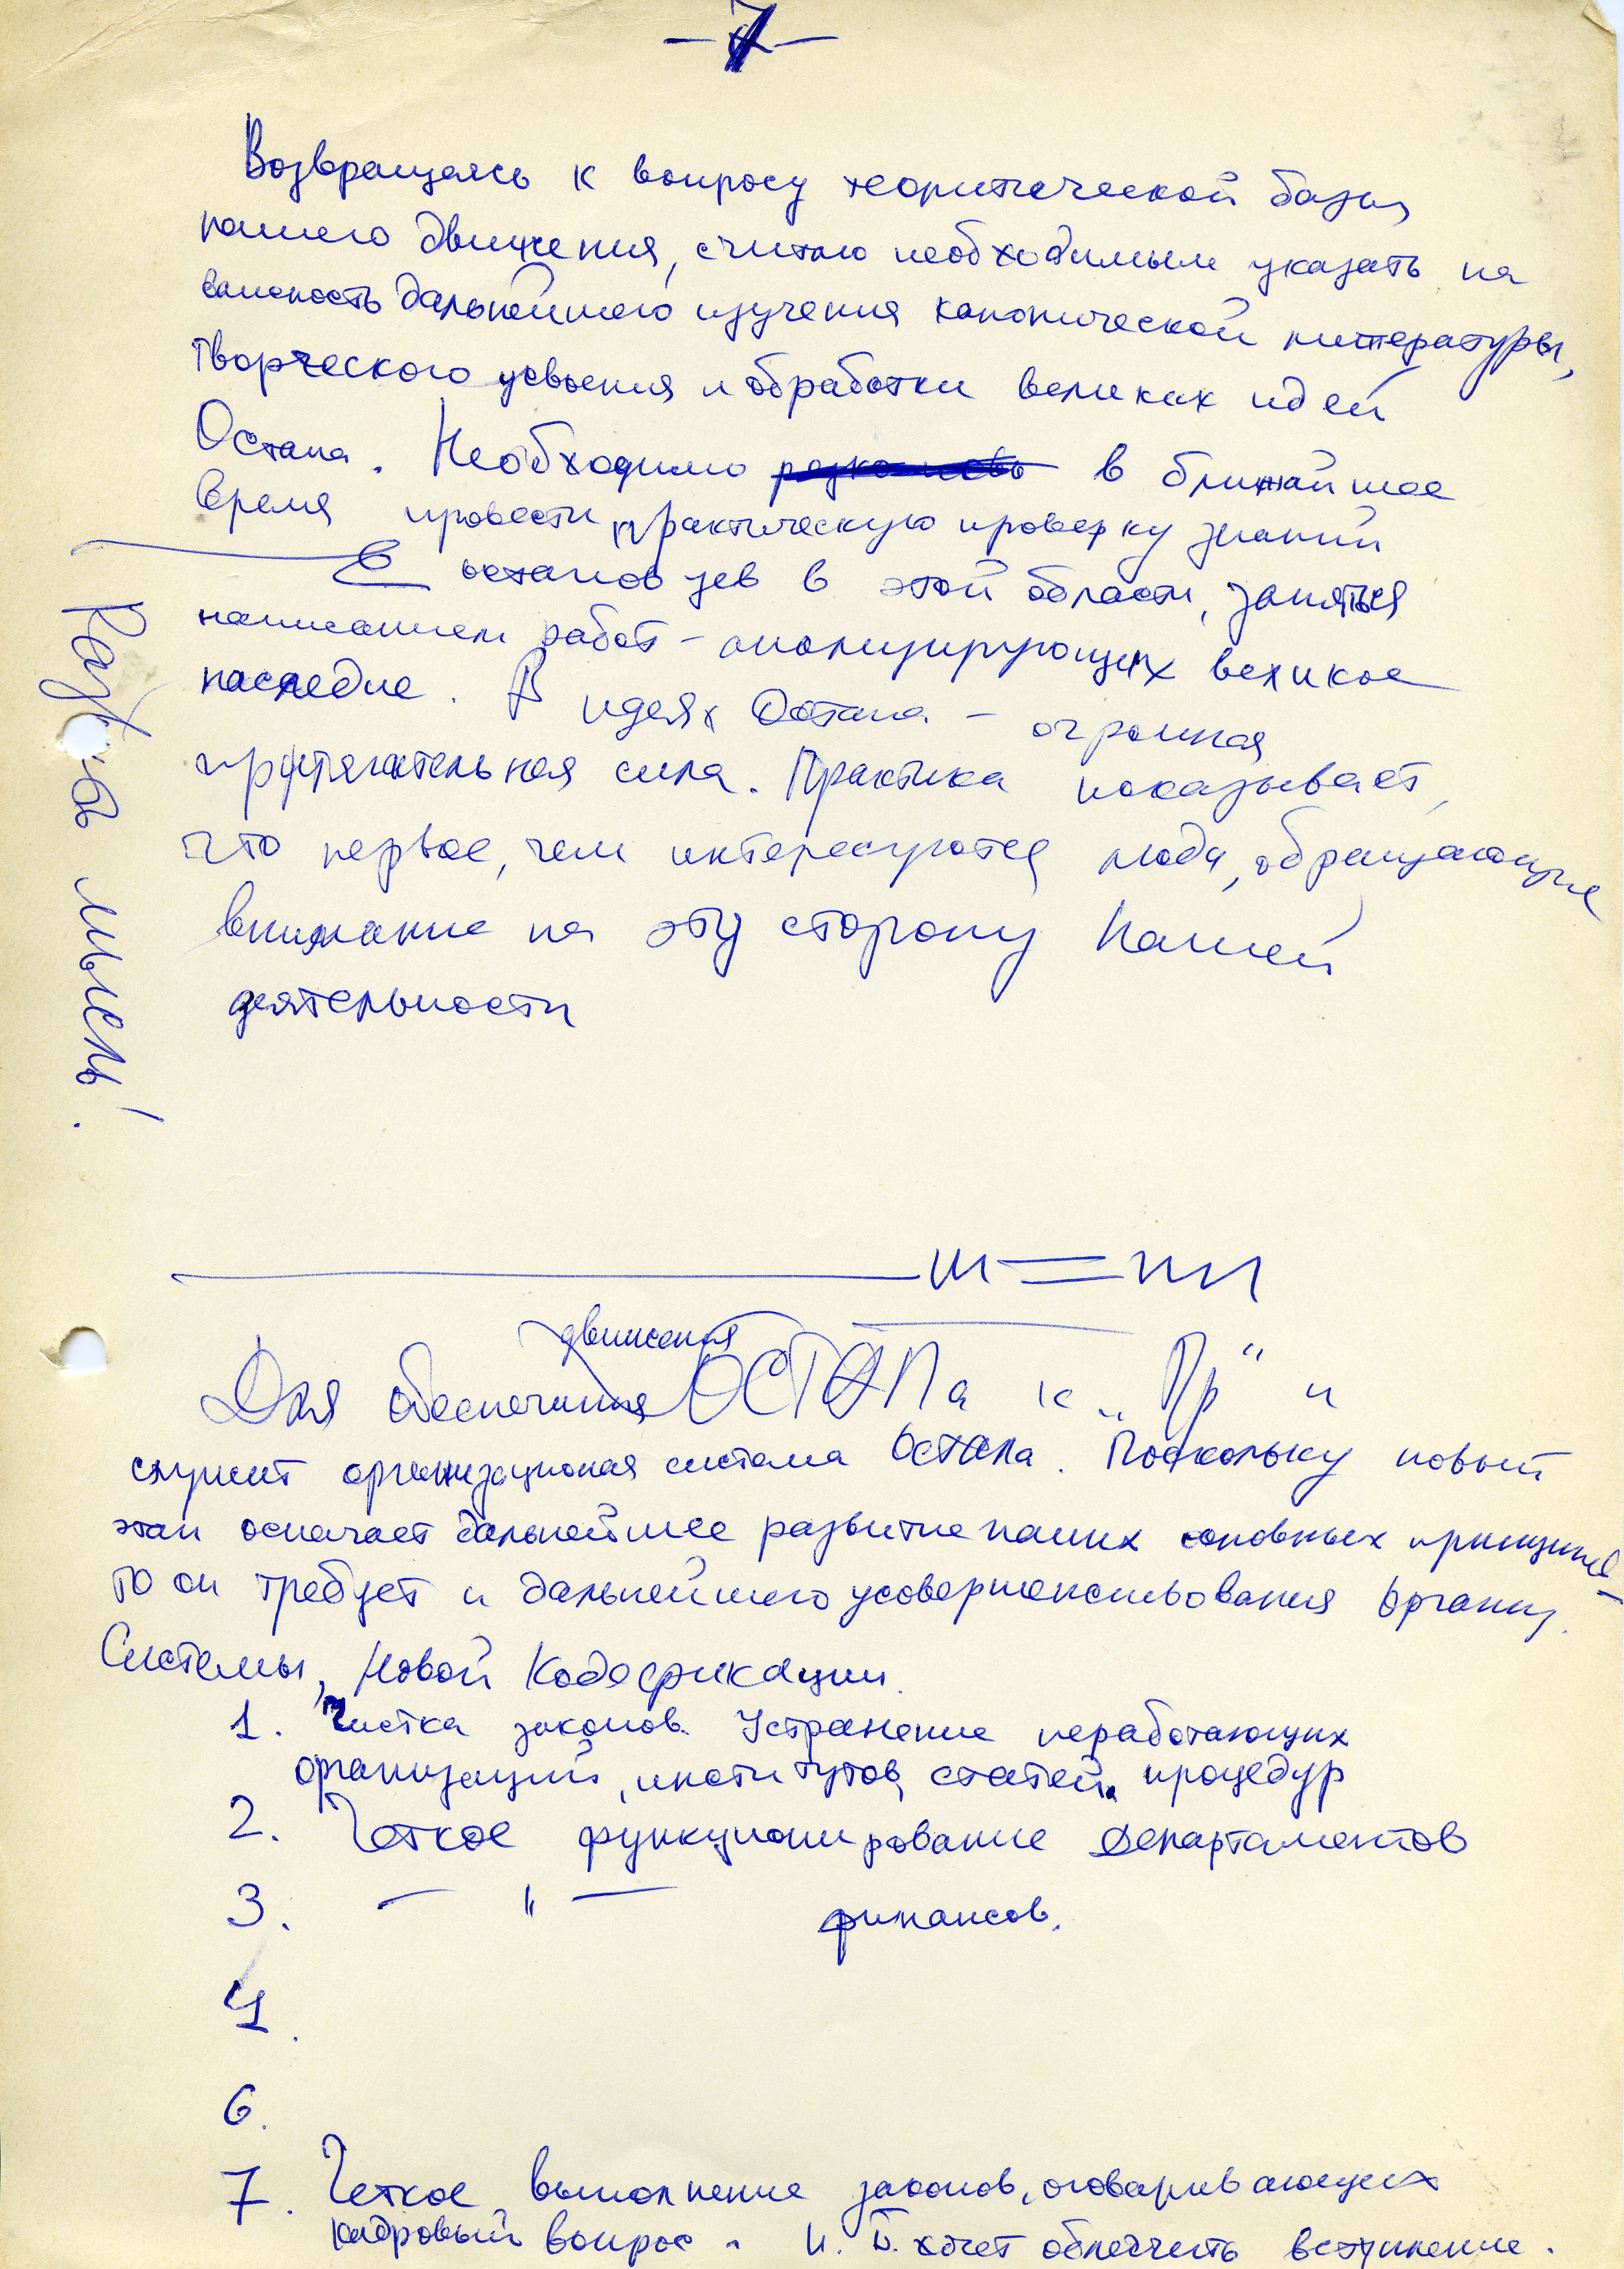 -7-
Возвращаясь к вопросу теоритической базы
нашего движения, считаю необходимым указать на
важность дальнейшего изучения канонической литературы,
творческого усвоения и обработки великих идей
Остапа. Необходимо в ближайшее
время провести практическую проверку знаний
остаповцев в этой области, заняться
написанием работ - анализирующих великое
наследие. В идеях Остапа - огромная
притягательная сила. Практика показывает,
что первое, чем интересуются люди, обращающие
внимание на эту сторону нашей
деятельности
мысль!
движения
Для обеспечения ОСТАПа к „Пр“ и
служит организационая система Остапа. Поскольку новый
этап означает дальнейшее развитие наших основных принципов
то он требует и дальнейшего усовершенствования организ.
системы, новой кодификации.
1. Чистка законов. Устранение неработающих
организаций, институтов, статей, процедур
2. Четкое функционирование департаментов
3. — " — финансов.
4.
6.
7. Четкое выполнение законов, оговаривающих
кадровый вопрос. хочет облегчить вступление.